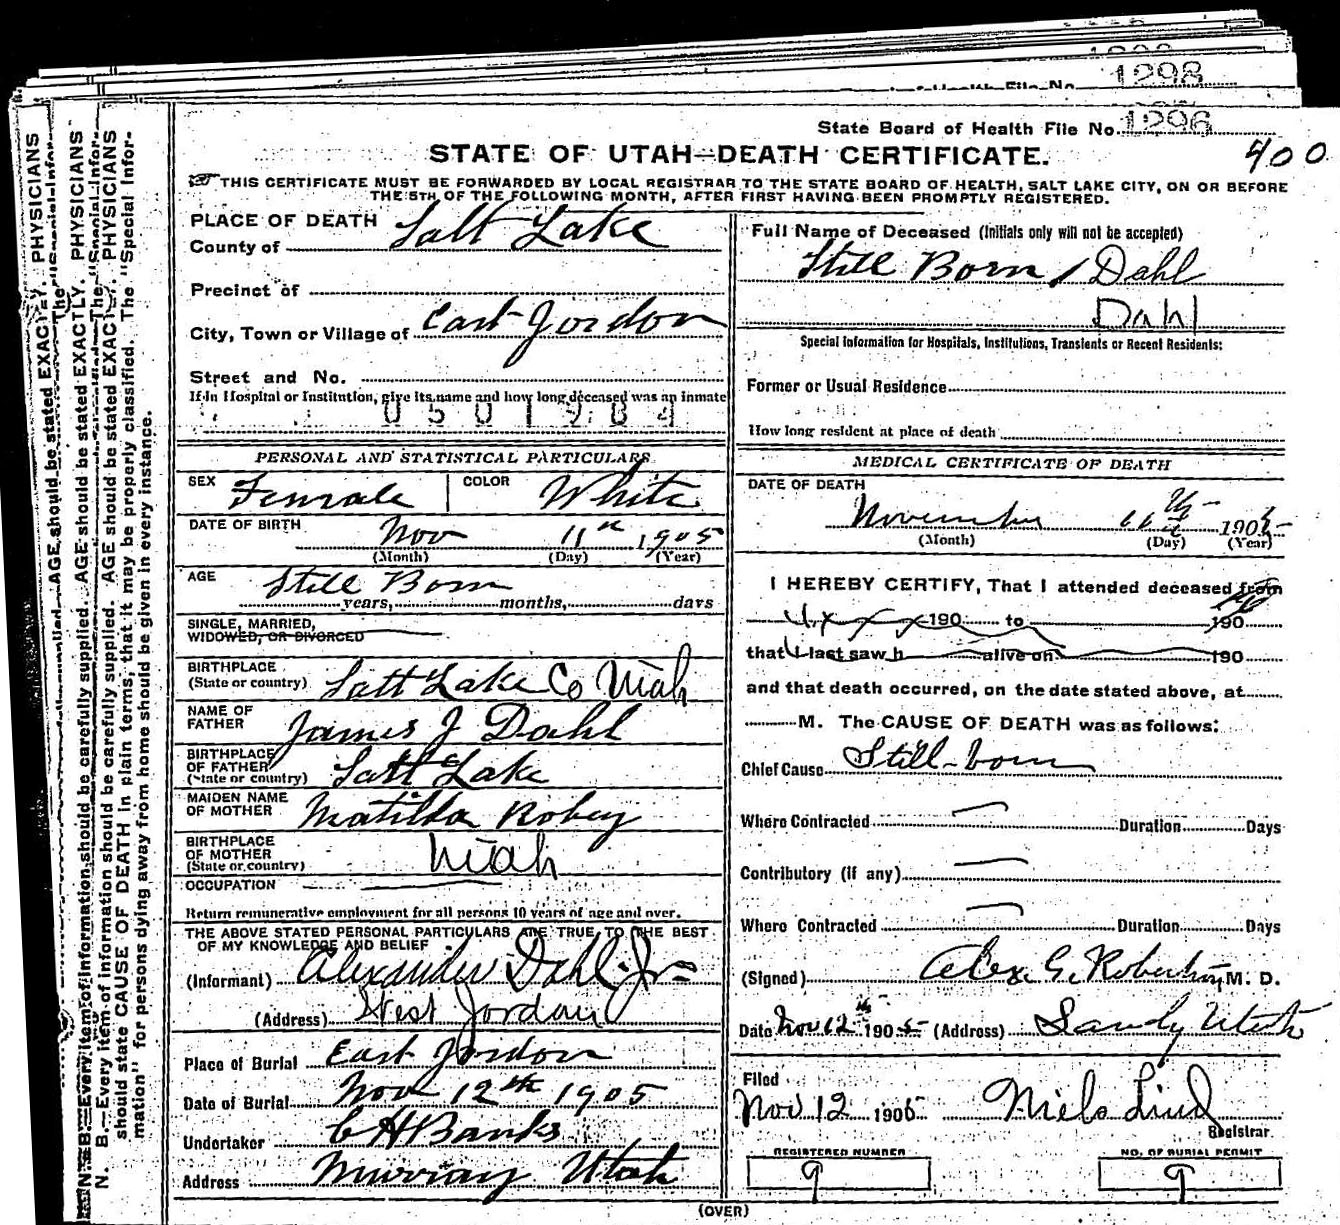 1298
State Board of Health File No. 1296
STATE OF UTAH—DEATH CERTIFICATE.
400
THIS CERTIFICATE MUST BE FORWARDED BY LOCAL REGISTRAR TO THE STATE BOARD OF HEALTH, SALT LAKE CITY, ON OR BEFORE
THE 5TH OF THE FOLLOWING MONTH, AFTER FIRST HAVING BEEN PROMPTLY REGISTERED.
PLACE OF DEATH
County of Salt Lake
Precinct of
City, Town or Village of East Jordon
Street and No.
If in Hospital or Institution, give its name and how long deceased was an inmate
0501984
PERSONAL AND STATISTICAL PARTICULARS
SEX Female COLOR White
DATE OF BIRTH Nov 11th 1905
(Month) (Day) (Year)
AGE Still Born
years, months, days
SINGLE, MARRIED,
WIDOWED, OR DIVORCED
BIRTHPLACE
(State or country) Salt Lake Co Utah
NAME OF
FATHER James J Dahl
BIRTHPLACE
OF FATHER
(State or country) Salt Lake
MAIDEN NAME
OF MOTHER Matilda Robey
BIRTHPLACE
OF MOTHER
(State or country) Utah
OCCUPATION
Return remunerative employment for all persons 10 years of age and over.
THE ABOVE STATED PERSONAL PARTICULARS ARE TRUE TO THE BEST
OF MY KNOWLEDGE AND BELIEF
(Informant) Alexander Dahl Jr
(Address) West Jordan
Place of Burial East Jordon
Date of Burial Nov 12th 1905
Undertaker C H Banks
Address Murray Utah
Full Name of Deceased (Initials only will not be accepted)
Still Born / Dahl
Dahl
Special Information for Hospitals, Institutions, Transients or Recent Residents:
Former or Usual Residence
How long resident at place of death
MEDICAL CERTIFICATE OF DEATH
DATE OF DEATH
November 11 1905
(Month) (Day) (Year)
I HEREBY CERTIFY, That I attended deceased from
190 to 190
that I last saw h alive on 190
and that death occurred, on the date stated above, at
M. The CAUSE OF DEATH was as follows:
Chief Cause Still-born
Where Contracted Duration Days
Contributory (if any)
Where Contracted Duration Days
(Signed) Alex. G. Robertson, M. D.
Date Nov 12th 1905 (Address) Sandy Utah
Filed
Nov 12 1905 Niels Lind
Registrar
REGISTERED NUMBER
9
NO. OF BURIAL PERMIT
9
(OVER)
N. B.—Every item of information should be carefully supplied. AGE should be stated EXACTLY. PHYSICIANS
should state CAUSE OF DEATH in plain terms, that it may be properly classified. The "Special Infor-
mation" for persons dying away from home should be given in every instance.